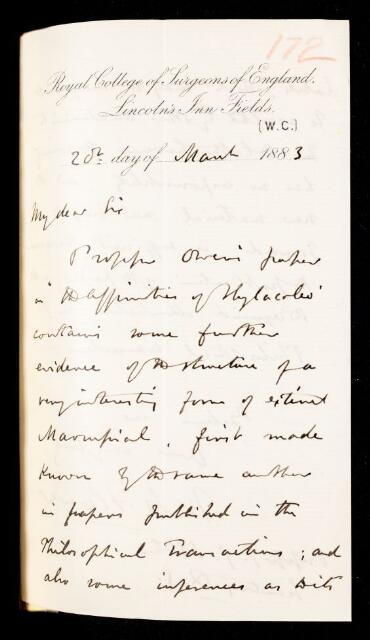 172
Royal College of Surgeons of England.
Lincoln's Inn Fields.
(W.C.)
20th day of March 1883
My dear Sir
Professor Owen's paper
on "the affinities of Thylacoleo"
contains some further
evidence of the structure of a
very interesting form of extinct
Marsupial, first made
known by the same author
in papers published in the
Philosophical Transactions; and
also some inferences as to its